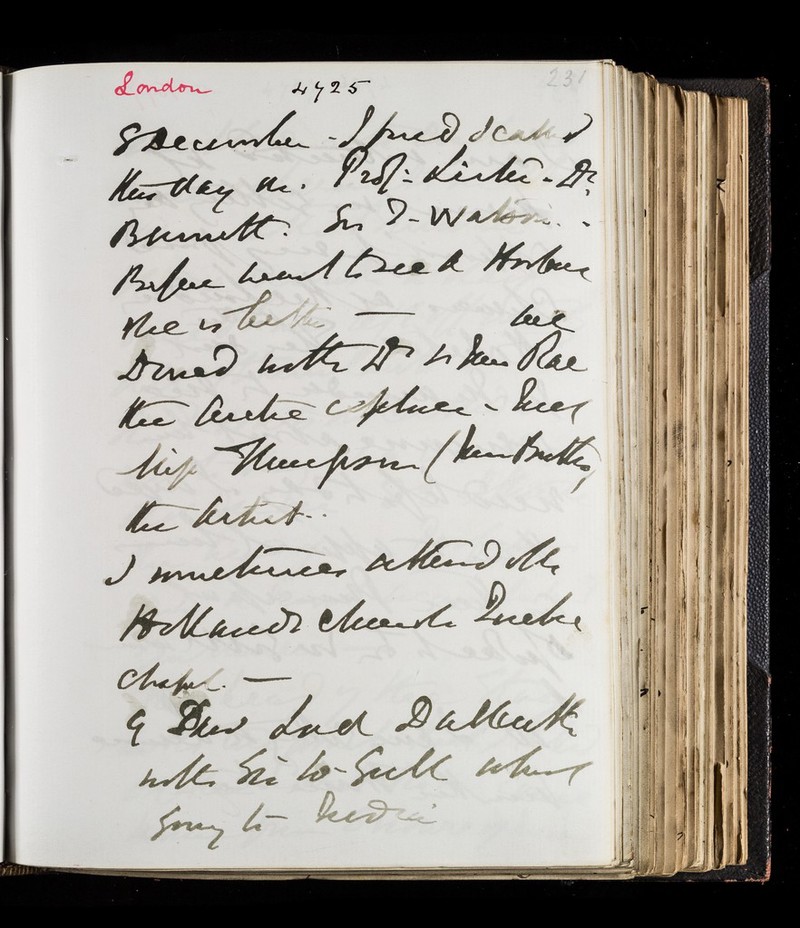 London 4725 231
8 December - I and called
this day on. Prof: Lister - Dr
Burnett. Sir T. Watson. -
Before went to see A Horton
she is better — we
Dined with Dr & Mrs Rae
the Arctic explorer - met
Miss Thompson (Mrs Butler)
the Artist.
I sometimes attend Mr
Hollands church Quebec
chapel. —
9 Saw Lord Dalhousie
with Sir W. Gull about
going to India